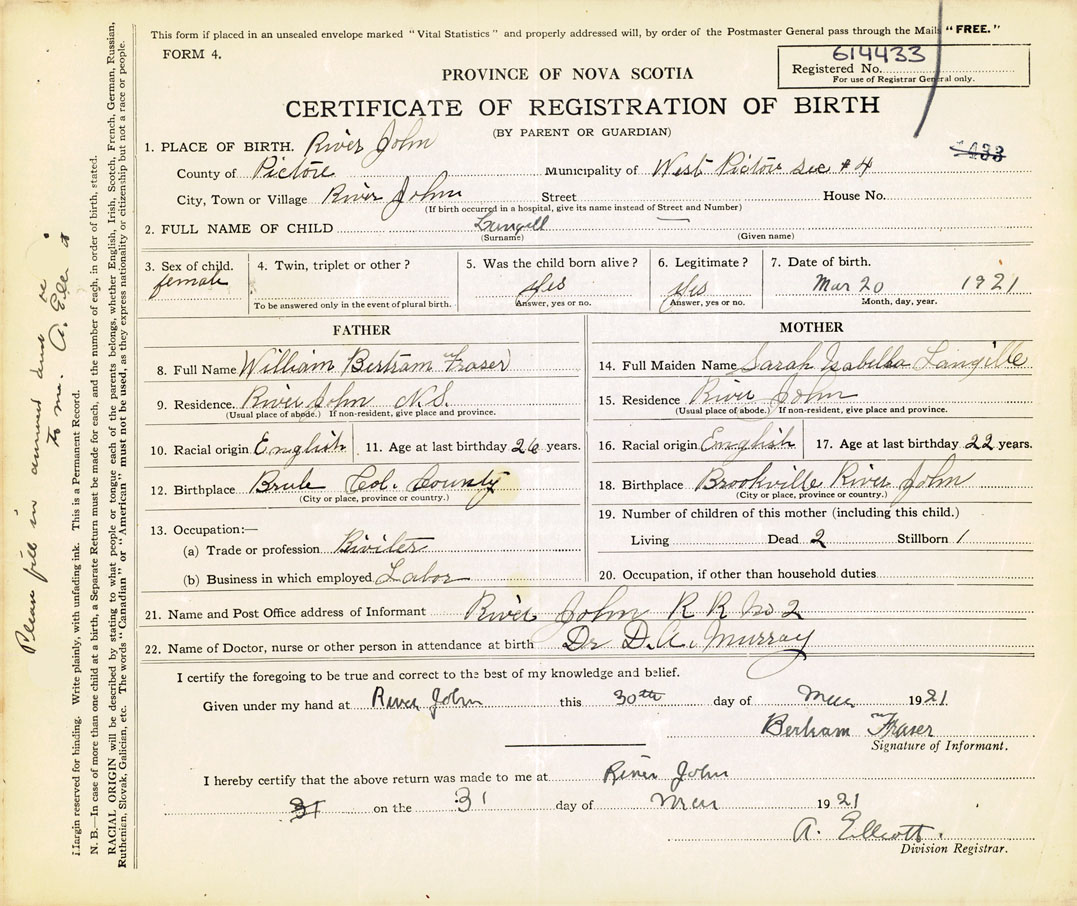 This form if placed in an unsealed envelope marked "Vital Statistics" and properly addressed will, by order of the Postmaster General pass through the Mails "FREE."
FORM 4.
614433
Registered No.
For use of Registrar General only.
PROVINCE OF NOVA SCOTIA
CERTIFICATE OF REGISTRATION OF BIRTH
(BY PARENT OR GUARDIAN)
1. PLACE OF BIRTH. River John
County of Pictou Municipality of West Pictou Sec # 4
City, Town or Village River John Street House No.
(If birth occurred in a hospital, give its name instead of Street and Number)
2. FULL NAME OF CHILD
(Surname) (Given name)
3. Sex of child. 4. Twin, triplet or other? 5. Was the child born alive? 6. Legitimate? 7. Date of birth.
female yes yes Mar 20 1921
To be answered only in the event of plural birth. Answer, yes or no. Answer, yes or no. Month, day, year.
FATHER
8. Full Name William Bertram Fraser
9. Residence. River John N.S.
(Usual place of abode.) If non-resident, give place and province.
10. Racial origin English 11. Age at last birthday 26 years.
12. Birthplace Brule Col. County
(City or place, province or country.)
13. Occupation:—
(a) Trade or profession Riviter
(b) Business in which employed Labor
MOTHER
14. Full Maiden Name Sarah Isabella Langille
15. Residence River John
(Usual place of abode.) If non-resident, give place and province.
16. Racial origin English 17. Age at last birthday 22 years.
18. Birthplace Brookville River John
(City or place, province or country.)
19. Number of children of this mother (including this child.)
Living Dead 2 Stillborn 1
20. Occupation, if other than household duties
21. Name and Post Office address of Informant River John R R No 2
22. Name of Doctor, nurse or other person in attendance at birth Dr D. A. Murray
I certify the foregoing to be true and correct to the best of my knowledge and belief.
Given under my hand at River John this 30th day of Mar 1921
Bertram Fraser
Signature of Informant.
I hereby certify that the above return was made to me at River John
31 on the 31 day of 1921
A. Elliott.
Division Registrar.
Margin reserved for binding. Write plainly, with unfading ink. This is a Permanent Record.
N. B.—In case of more than one child at a birth, a Separate Return must be made for each, and the number of each, in order of birth, stated.
RACIAL ORIGIN will be described by stating to what people or tongue each of the parents belongs, whether English, Irish, Scotch, French, German, Russian,
Ruthenian, Slovak, Galician, etc. The words "Canadian" or "American" must not be used, as they express nationality or citizenship but not a race or people.
Please fill in
to me. A.